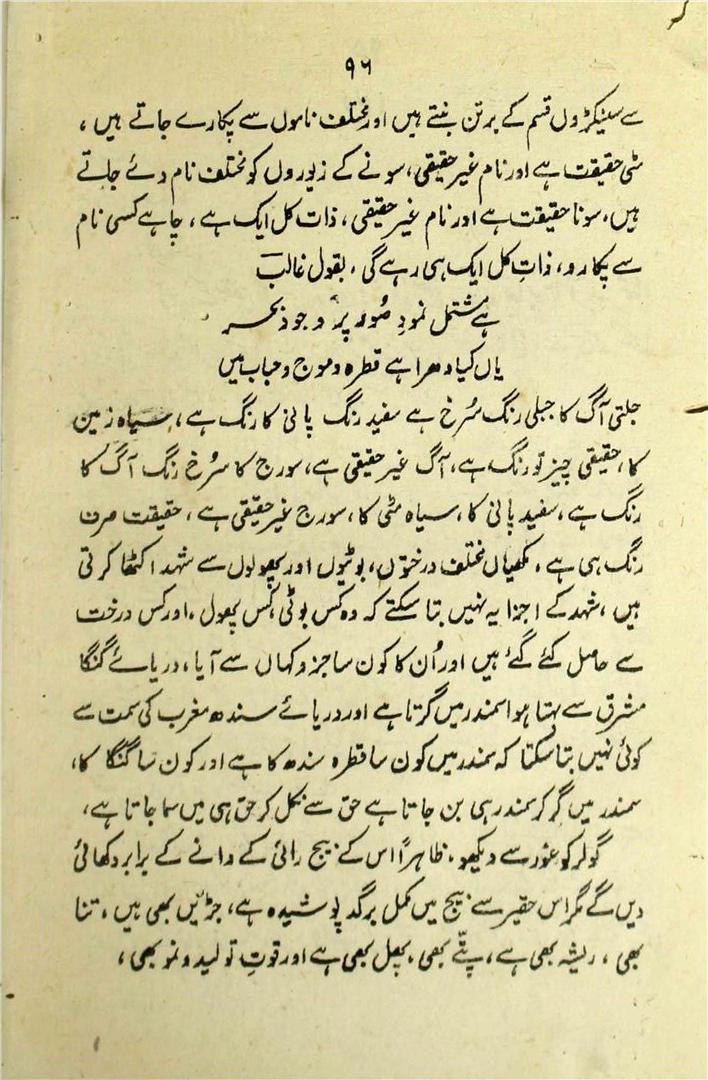 ۹۶
سے سینکڑوں قسم کے برتن بنتے ہیں اور مختلف ناموں سے پکارے جاتے ہیں،
مٹی حقیقت ہے اور نام غیر حقیقی، سونے کے زیوروں کو مختلف نام دئے جاتے
ہیں، سونا حقیقت ہے اور نام غیر حقیقی، ذات کل ایک ہے، چاہے کسی نام
سے پکارو، ذاتِ کل ایک ہی رہے گی، بقول غالبؔ
ہے مشتمل نمودِ صُور پر وجود بحر
یاں کیا دھرا ہے قطرہ و موج و حباب میں
جلتی آگ کا جبلی رنگ سُرخ ہے سفید رنگ پانی کا رنگ ہے، سیاہ زمین
کا، حقیقی چیز تو رنگ ہے، آگ غیر حقیقی ہے، سورج کا سُرخ رنگ آگ کا
رنگ ہے، سفید پانی کا، سیاہ مٹی کا، سورج غیر حقیقی ہے، حقیقت صرف
رنگ ہی ہے، مکھیاں مختلف درختوں، بوٹیوں اور پھولوں سے شہد اکٹھا کرتی
ہیں، شہد کے اجزا یہ نہیں بتا سکتے کہ وہ کس بوٹی کس پھول، اور کس درخت
سے حاصل کئے گئے ہیں اور اُن کا کون سا جزو کہاں سے آیا، دریائے گنگا
مشرق سے بہتا ہوا سمندر میں گرتا ہے اور دریائے سندھ مغرب کی سمت سے
کوئی نہیں بتا سکتا کہ سمندر میں کون سا قطرہ سندھ کا ہے اور کون سا گنگا کا،
سمندر میں گر کر سمندر ہی بن جاتا ہے حق سے نکل کر حق ہی میں سما جاتا ہے،
گولر کو غور سے دیکھو، ظاہراً اس کے بیج رائی کے دانے کے برابر دکھائی
دیں گے مگر اس حقیر سے بیج میں مکمل برگد پوشیدہ ہے، جڑیں بھی ہیں، تنا
بھی، ریشہ بھی ہے، پتّے بھی، پھل بھی ہے اور قوتِ تولید و نمو بھی،